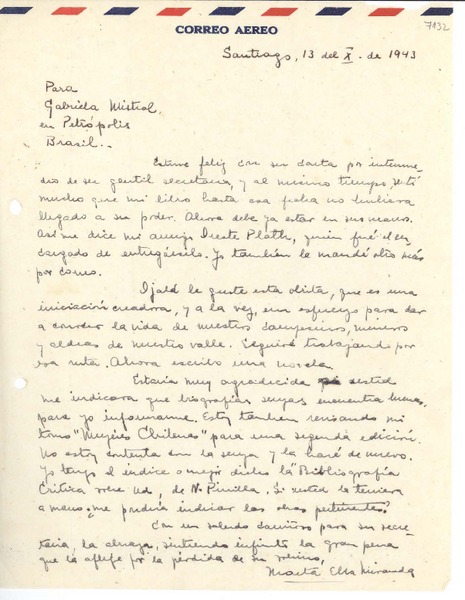 CORREO AEREO
7132
Santiago, 13 del X. de 1943
Para
Gabriela Mistral
en Petrópolis
Brasil.-
Estuve feliz con su carta por interme-
dio de su gentil secretaria, y al mismo tiempo sentí
mucho que mi libro hasta esa fecha no hubiera
llegado a su poder. Ahora debe ya estar en sus manos.
Así me dice mi amigo Oreste Plath, quien fué el en-
cargado de entregárselo. Yo también le mandé otro más
por correo.
Ojalá le guste esta obrita, que es una
iniciación creadora, y a la vez, un esfuerzo para dar
a conocer la vida de nuestros campesinos, mineros
y aldeas de nuestro valle. Seguiré trabajando por
esa ruta. Ahora escribo una novela.
Estaría muy agradecida si usted
me indicara que biografías suyas encuentra buenas,
para yo informarme. Estoy tambien revisando mi
tomo "Mujeres Chilenas" para una segunda edición.
No estoy contenta con la suya y la haré de nuevo.
Yo tengo el índice o mejor dicho la "Bibliografía
Crítica sobre Ud, de N. Pinilla. Si usted la tuviera
a mano ¿me podría indicar las otras pertinentes?
Con un saludo cariñoso para su secre-
taria, la abraza, sintiendo infinito la gran pena
que la aflije por la pérdida de su
Marta Elba Miranda